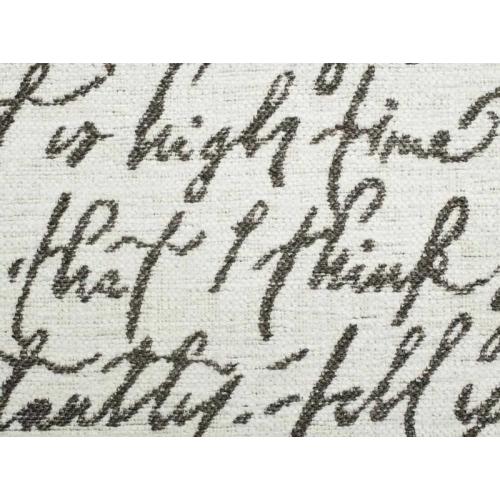 is high time
that I think
fell